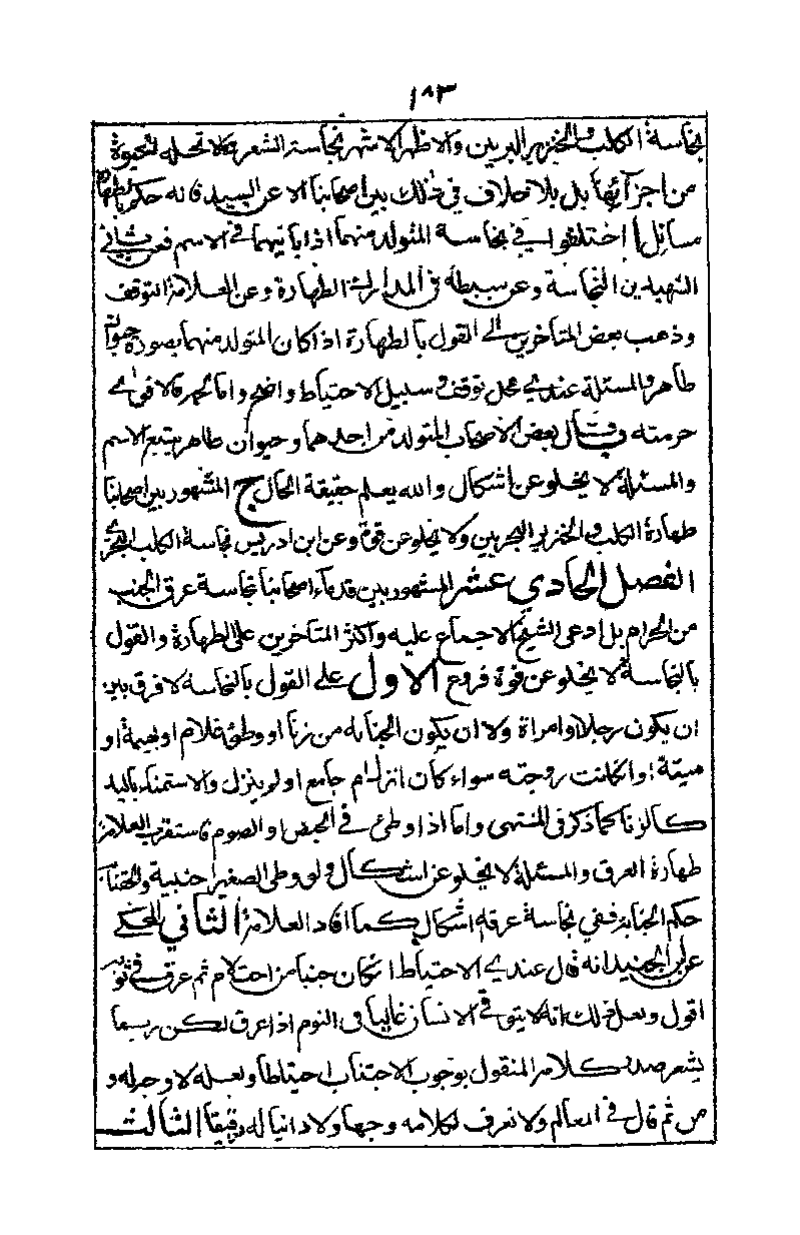 ١٨٣
نجاسة الكلب والخنزير البريين والاظهر الاشهر نجاسة الشعر وما لا تحله الحيوة
من اجزائهما بل بلا خلاف في ذلك بين اصحابنا الا عن السيد فانه حكم بالطهارة
مسائل ا اختلفوا في نجاسة المتولد منهما اذا باينهما في الاسم فعن ثاني
الشهيدين النجاسة وعن سبطه في المدارك الطهارة وعن العلامة التوقف
وذهب بعض المتاخرين الى القول بالطهارة اذا كان المتولد منهما بصورة حيوان
طاهر والمسئلة عندي محل توقف وسبيل الاحتياط واضح واما لحمه فالاقوى
حرمته ب قال بعض الاصحاب المتولد من احدهما وحيوان طاهر يتبع الاسم
والمسئلة لا يخلو عن اشكال والله يعلم حقيقة الحال ج المشهور بين اصحابنا
طهارة الكلب والخنزير البحريين ولا يخلو عن قوة وعن ابن ادريس نجاسة الكلب البحري
الفصل الحادي عشر المشهور بين قدماء اصحابنا نجاسة عرق الجنب
من الحرام بل ادعى الشيخ الاجماع عليه واكثر المتاخرين على الطهارة والقول
بالنجاسة لا يخلو عن قوة فروع الاول على القول بالنجاسة لا فرق بين
ان يكون رجلا او امراة ولا ان يكون الجنابه من زنا او وطئ غلام او بهيمة او
ميتة او انكانت زوجته سواء كان انزل ام جامع او لم ينزل والاستمناء باليد
كالزنا كما ذكر في المنتهى واما اذا وطئ في الحيض او الصوم فاستقرب العلامة
طهارة العرق والمسئلة لا يخلو عن اشكال ولو وطى الصغير اجنبية والحقنا به
حكم الجنابة ففي نجاسة عرقه اشكال كما افاد العلامة الثاني المحكي
عن ابن الجنيد انه قال عندي الاحتياط ان كان جنبا من احتلام ثم عرق في ثوبه
اقول ولعل ذلك انه لا يتوقى الانسان غالبا في النوم اذا عرق لكن ربما
يشعر صدر كلامه المنقول بوجوب الاجتناب احتياطا ولعله لا وجه له و
من ثم قال في المعالم ولا نعرف لكلامه وجها ولا داينا له رفيقا الثالث